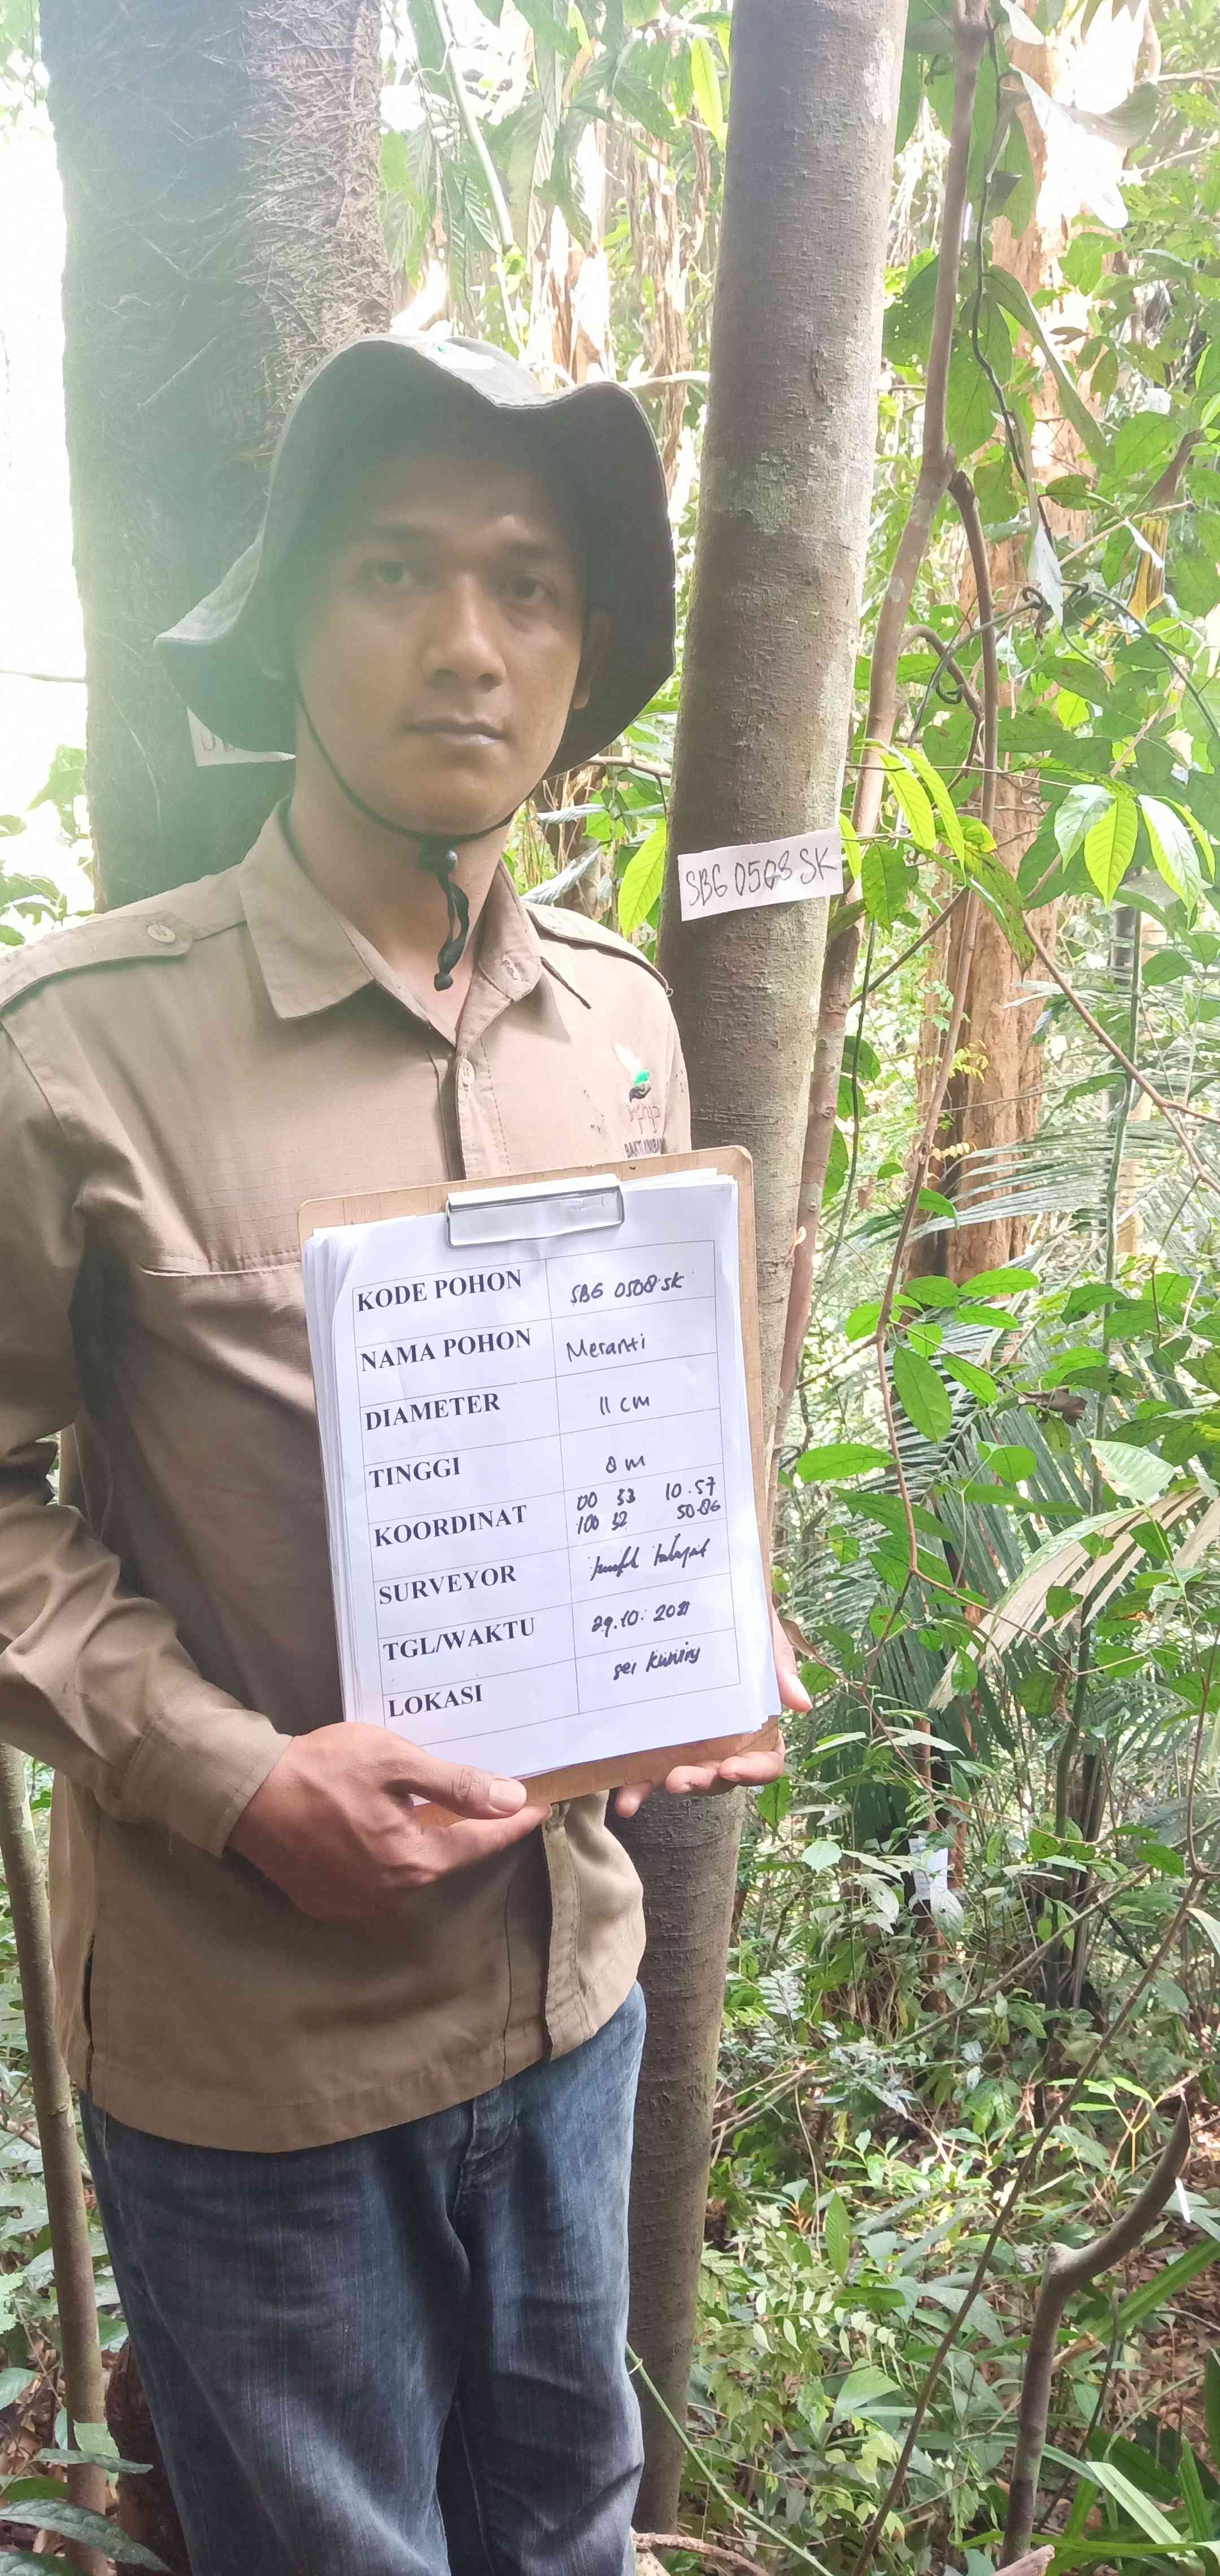 SBG 0508 SK
KODE POHON SBG 0508 SK
NAMA POHON Meranti
DIAMETER 11 cm
TINGGI 8 m
KOORDINAT 00 33 10.57
100 32 50.86
SURVEYOR
TGL/WAKTU 29.10.2021
LOKASI sei Kuning